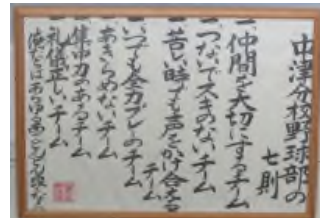 中津分校野球部の
七則
一、仲間を大切にするチーム
一、つないでスキのないチーム
一、苦しい時でも声をかけ合える
チーム
一、いつでも全力プレーのチーム
一、あきらめないチーム
一、集中力のあるチーム
一、礼儀正しいチーム